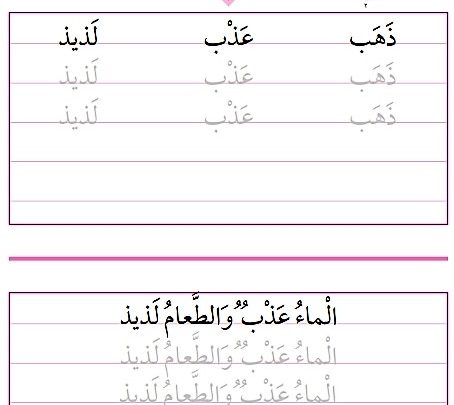 ذَهَب عَذْب لَذيذ
ذَهَب عَذْب لَذيذ
ذَهَب عَذْب لَذيذ
الْماءُ عَذْبٌ وَالطَّعامُ لَذيذ
الْماءُ عَذْبٌ وَالطَّعامُ لَذيذ
الْماءُ عَذْبٌ وَالطَّعامُ لَذيذ